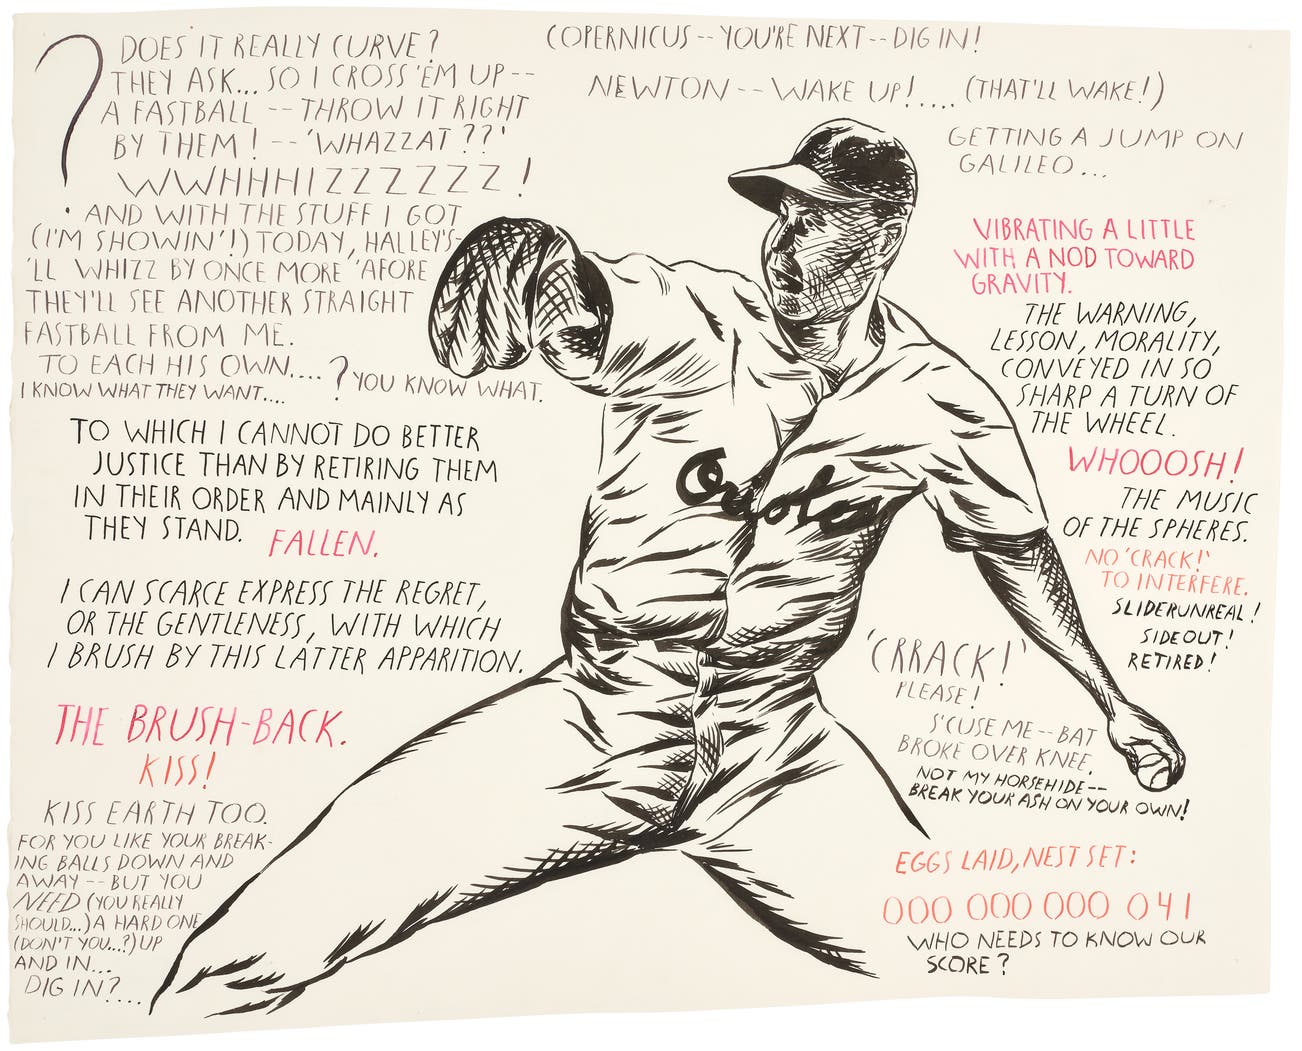 ? DOES IT REALLY CURVE?
THEY ASK... SO I CROSS 'EM UP--
A FASTBALL -- THROW IT RIGHT
BY THEM! -- 'WHAZZAT??'
WWHHHIZZZZZZ!
AND WITH THE STUFF I GOT
(I'M SHOWIN'!) TODAY, HALLEY'S-
'LL WHIZZ BY ONCE MORE 'AFORE
THEY'LL SEE ANOTHER STRAIGHT
FASTBALL FROM ME.
TO EACH HIS OWN....
I KNOW WHAT THEY WANT....
? YOU KNOW WHAT.
TO WHICH I CANNOT DO BETTER
JUSTICE THAN BY RETIRING THEM
IN THEIR ORDER AND MAINLY AS
THEY STAND.
FALLEN.
I CAN SCARCE EXPRESS THE REGRET,
OR THE GENTLENESS, WITH WHICH
I BRUSH BY THIS LATTER APPARITION.
THE BRUSH-BACK.
KISS!
KISS EARTH TOO.
FOR YOU LIKE YOUR BREAK-
ING BALLS DOWN AND
AWAY -- BUT YOU
NEED (YOU REALLY
SHOULD...) A HARD ONE
(DON'T YOU...?) UP
AND IN...
DIG IN?....
COPERNICUS -- YOU'RE NEXT -- DIG IN!
NEWTON -- WAKE UP!.... (THAT'LL WAKE!)
GETTING A JUMP ON
GALILEO...
VIBRATING A LITTLE
WITH A NOD TOWARD
GRAVITY.
THE WARNING,
LESSON, MORALITY,
CONVEYED IN SO
SHARP A TURN OF
THE WHEEL.
WHOOOSH!
THE MUSIC
OF THE SPHERES.
NO 'CRACK!'
TO INTERFERE.
SLIDERUNREAL!
SIDE OUT!
RETIRED!
Orioles
'CRRACK!'
PLEASE!
S'CUSE ME -- BAT
BROKE OVER KNEE.
NOT MY HORSEHIDE --
BREAK YOUR ASH ON YOUR OWN!
EGGS LAID, NEST SET:
000 000 000 041
WHO NEEDS TO KNOW OUR
SCORE?